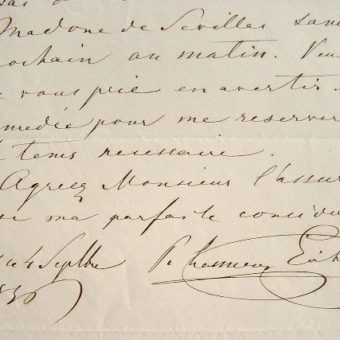 Madone de Sevilles sam
ochain au matin. Veu
vous prie en avertir
médée pour me reserver
tems necessaire.
Agréez Monsieur l'assur
ma parfaite consid
4 Septbre